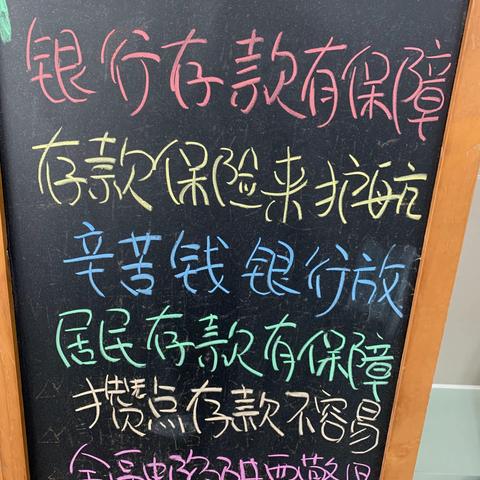 银行存款有保障
存款保险来护航
辛苦钱银行放
居民存款有保障
攒点存款不容易
金融